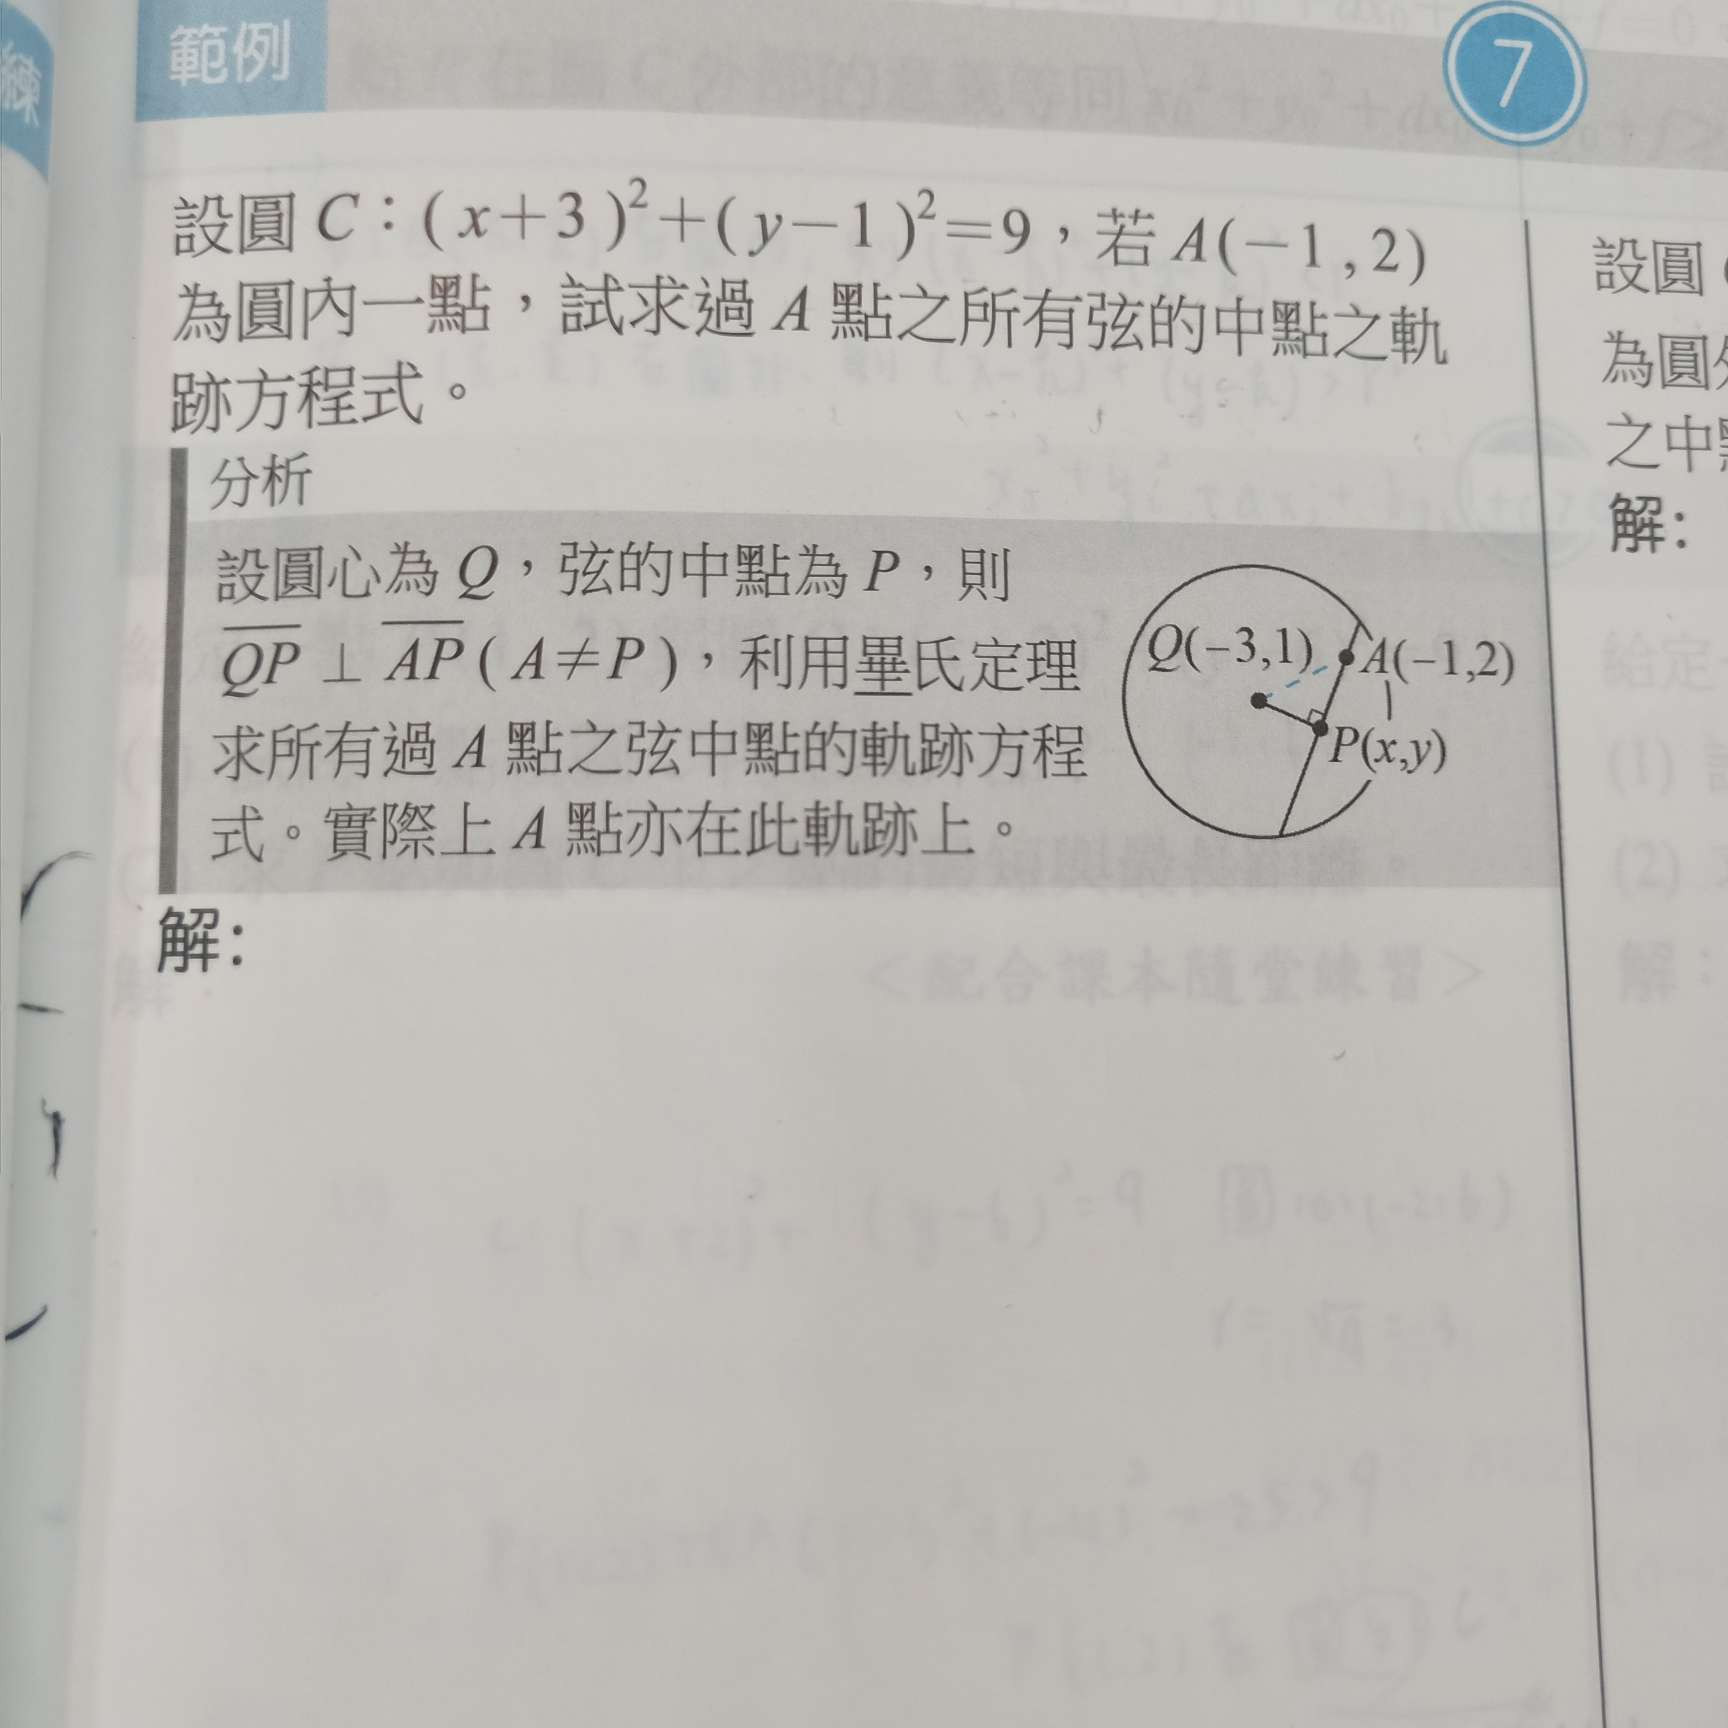 練
範例
7
設圓 C：(x+3)²+(y−1)²=9，若 A(−1,2)
為圓內一點，試求過 A 點之所有弦的中點之軌
跡方程式。
分析
設圓心為 Q，弦的中點為 P，則
QP ⊥ AP (A≠P)，利用畢氏定理
求所有過 A 點之弦中點的軌跡方程
式。實際上 A 點亦在此軌跡上。
Q(−3,1)
A(−1,2)
P(x,y)
解：
設圓
為圓
之中
解：